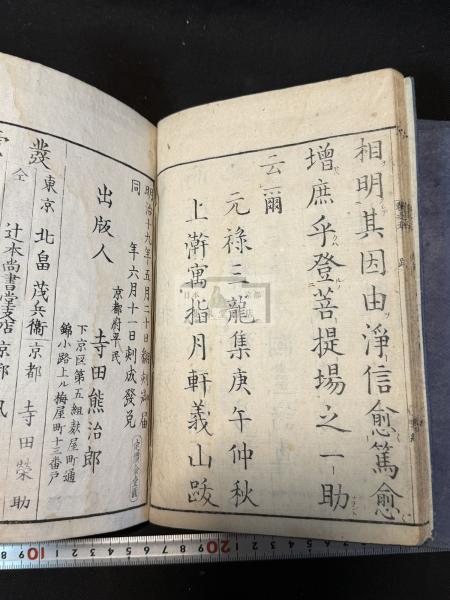 相明其因由淨信愈篤愈
增庶乎登菩提場之一助
云爾
元祿三龍集庚午仲秋
上澣寓指月軒義山跋
明治十九年五月二十日翻刻御届
同 年六月十一日刻成發兌
京都府平民
出版人 寺田熊治郎
下京区第五組麩屋町通
錦小路上ル梅屋町十三番戸
發
東京 北畠茂兵衛
京都 寺田榮助
仝 辻本尚書堂支店